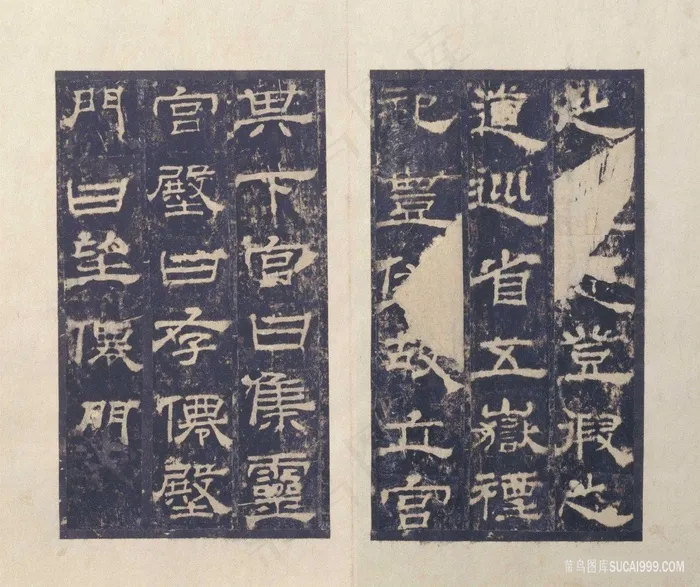 之登徦之
道巡省五嶽禋
祀豐故立宮
其下宮曰集靈
宮殿曰存僊殿
門曰望僊門
菜鸟图库SUCAI999.COM